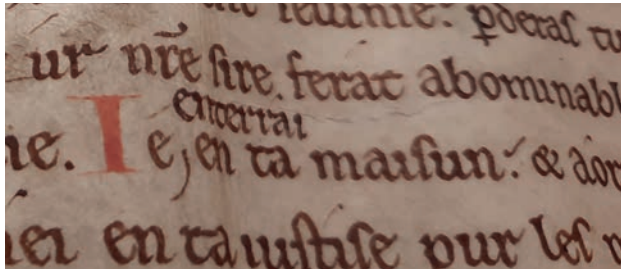 ꝑderas tu
ur nr̄e sire. ferat abominabl
enterrai
ie. Ie, en ta maisun: & aor
iei en ta iustise pur les